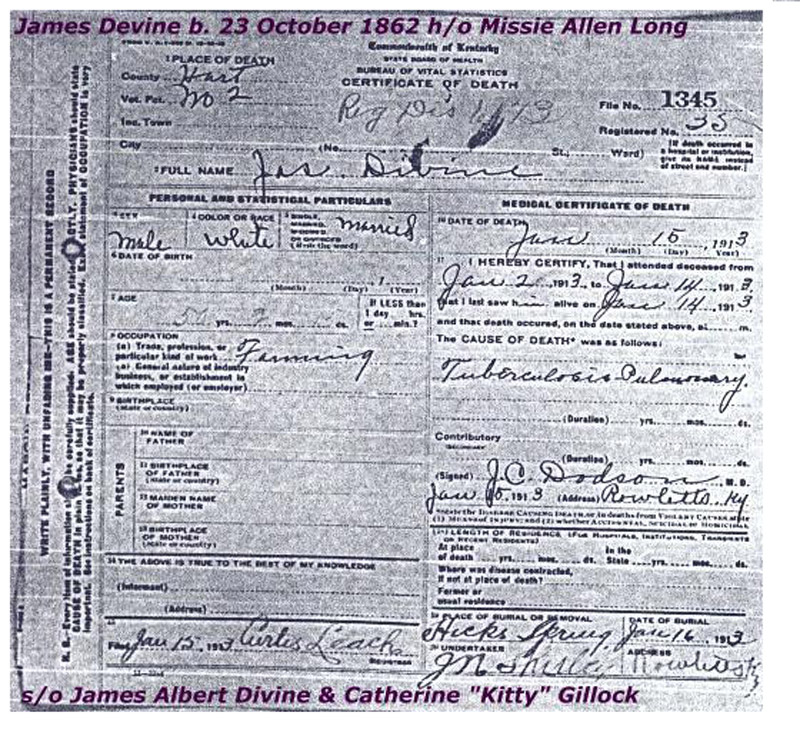 James Devine b. 23 October 1862 h/o Missie Allen Long
Commonwealth of Kentucky
STATE BOARD OF HEALTH
BUREAU OF VITAL STATISTICS
CERTIFICATE OF DEATH
1 PLACE OF DEATH
County Hart
Vot. Pct. No 2
Inc. Town
City
(No. St., Ward)
Reg Dis 1173
File No. 1345
Registered No. 35
(If death occurred in a hospital or institution, give its NAME instead of street and number.)
2 FULL NAME Jas. Divine
PERSONAL AND STATISTICAL PARTICULARS
3 SEX Male
4 COLOR OR RACE White
5 SINGLE, MARRIED, WIDOWED OR DIVORCED (Write the word) Married
6 DATE OF BIRTH
(Month) (Day) (Year)
7 AGE
yrs. mos. ds.
If LESS than 1 day, hrs. or min.?
8 OCCUPATION
(a) Trade, profession, or particular kind of work Farming
General nature of industry business, or establishment in which employed (or employer)
9 BIRTHPLACE
(State or country)
PARENTS
10 NAME OF FATHER
11 BIRTHPLACE OF FATHER
(State or country)
12 MAIDEN NAME OF MOTHER
13 BIRTHPLACE OF MOTHER
(State or country)
14 THE ABOVE IS TRUE TO THE BEST OF MY KNOWLEDGE
(Informant)
(Address)
15
Filed Jan 15, 1913 Curtis Leach
REGISTRAR
MEDICAL CERTIFICATE OF DEATH
16 DATE OF DEATH
Jan 15, 1913
(Month) (Day) Year)
17 I HEREBY CERTIFY, That I attended deceased from
Jan 2, 1913, to Jan 14, 1913
that I last saw h alive on Jan 14, 1913
and that death occured, on the date stated above, at m.
The CAUSE OF DEATH* was as follows:
Tuberculosis Pulmonary.
(Duration) yrs. mos. ds.
Contributory
(Duration) yrs. mos. ds.
(Signed) J.C. Dodson, M. D.
Jan 15, 1913 (Address) Rowletts Ky
LENGTH OF RESIDENCE (FOR HOSPITALS, INSTITUTIONS, TRANSIENTS OR RECENT RESIDENTS)
At place of death yrs. mos. ds. In the State yrs. mos. ds.
Where was disease contracted, If not at place of death?
Former or usual residence
19 PLACE OF BURIAL OR REMOVAL Hicks Spring
DATE OF BURIAL Jan 16, 1913
20 UNDERTAKER
ADDRESS Rowletts Ky
WRITE PLAINLY, WITH UNFADING INK—THIS IS A PERMANENT RECORD
s/o James Albert Divine & Catherine "Kitty" Gillock